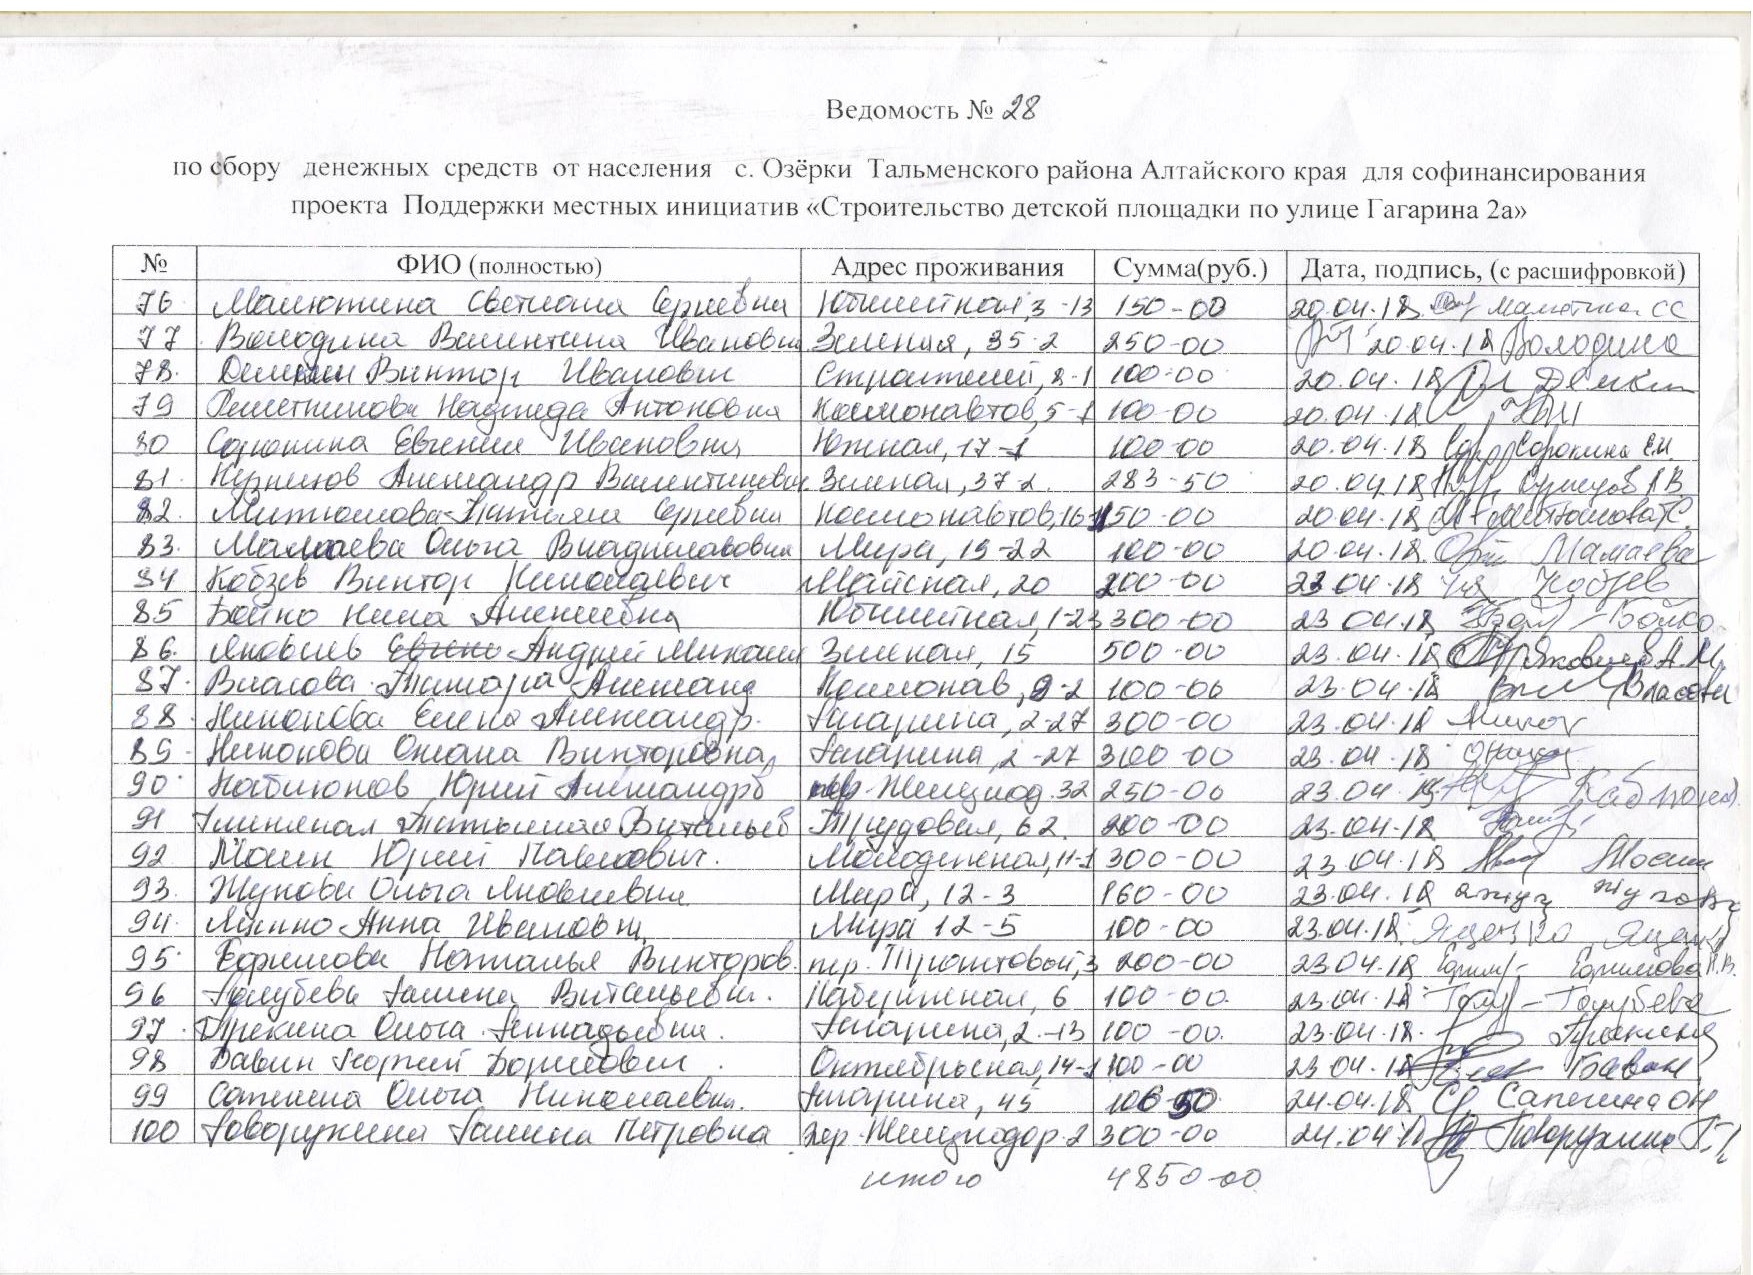 Ведомость № 28
по сбору денежных средств от населения с. Озёрки Тальменского района Алтайского края для софинансирования
проекта Поддержки местных инициатив «Строительство детской площадки по улице Гагарина 2а»
№ ФИО (полностью) Адрес проживания Сумма(руб.) Дата, подпись, (с расшифровкой)
76 Малютина Светлана Сергеевна Юбилейная, 3-13 150-00 20.04.18 Малютина СС
77 Володина Валентина Ивановна Зеленая, 35-2 250-00 20.04.18 Володина
78. Демкин Виктор Иванович Строителей, 8-1 100-00 20.04.18 Демкин
79 Решетникова Надежда Антоновна Космонавтов, 5-1 100-00 20.04.18
80 Сорокина Евгения Ивановна Южная, 17-1 100-00 20.04.18 Сорокина Е.И.
81. Александр Валентинович Зеленая, 37-2. 283-50 20.04.18
82. Митюшова Татьяна Сергеевна Космонавтов, 16-1 150-00 20.04.18 Митюшова Т.С.
83. Мамаева Ольга Владиславовна Мира, 19-22 100-00 20.04.18. Мамаева
84 Кобзев Виктор Николаевич Майская, 20 200-00 23.04.18 Кобзев
85 Бойко Нина Алексеевна Юбилейная, 1-23 300-00 23.04.18 Бойко
86. Яковлев Андрей Михаил Зеленая, 15 500-00 23.04.18 Яковлев А.М.
87. Власова Тамара Александ Космонав, 9-2 100-00 23.04.18 Власова
88. Никонова Елена Александр. Гагарина, 2-27 300-00 23.04.18
89. Никонова Оксана Викторовна Гагарина, 2-27 300-00 23.04.18
90. Каблуков Юрий Александров пер. Железнод. 32 250-00 23.04.18
91 Татьяна Витальев Трудовая, 62. 200-00 23.04.18
92. Мосин Юрий Павлович. Молодежная, 11-1 300-00 23.04.18 Мосин
93. Жукова Ольга Яковлевна Мира, 12-3 160-00 23.04.18 Жукова
94. Анна Ивановн Мира 12-5 100-00 23.04.18.
95. Ефимова Наталья Викторов. пер. Трактовый, 3 200-00 23.04.18 Ефимова Н.В.
96 Голубева Галина Витальевн. Набережная, 6 100-00. 23.04.18 Голубева
97. Ольга Геннадьевна. Гагарина, 2-13 100-00. 23.04.18.
98 Бавин Георгий Борисович. Октябрьская, 14-1 100-00 23.04.18 Бавин
99 Сапегина Ольга Николаевна. Гагарина, 45 106 50 24.04.18 Сапегина ОН
100 Говорухина Галина Петровна пер. Железнодор. 2 300-00 24.04.18 Говорухина Г.П.
итого 4850-00